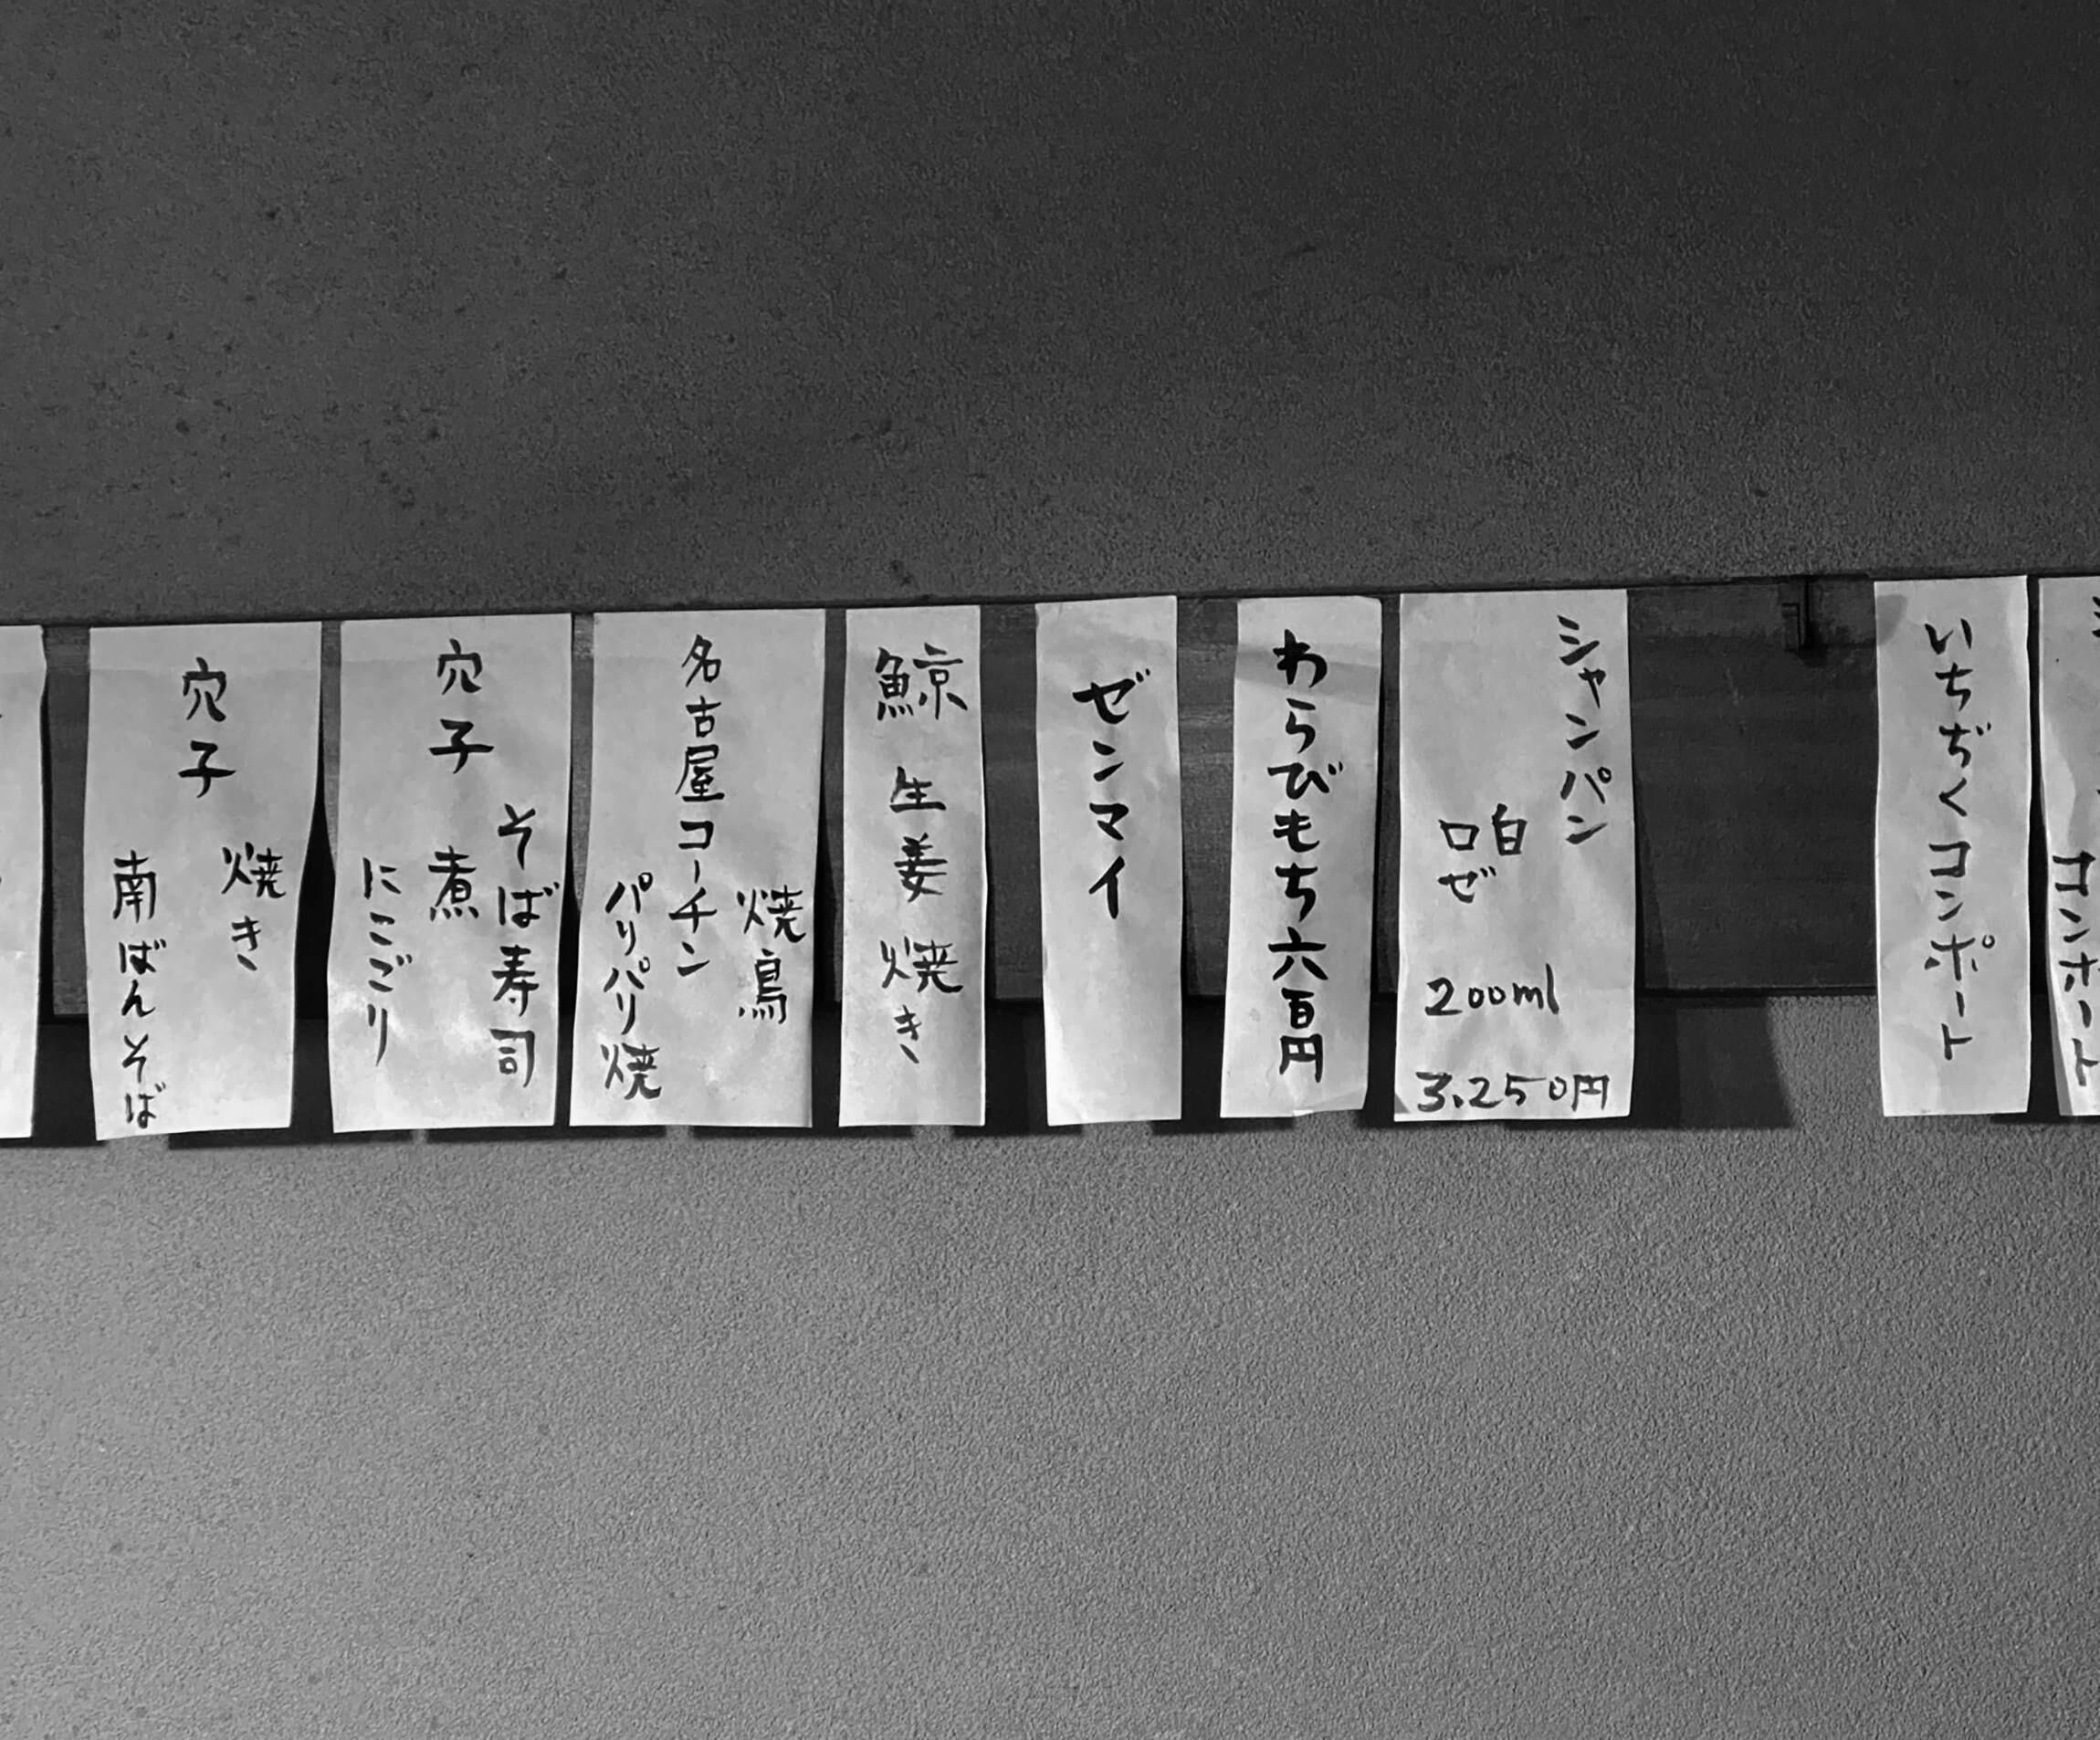 コンポート
いちぢくコンポート
シャンパン
白
ロゼ
200ml
3.250円
わらびもち六百円
ゼンマイ
鯨 生姜 焼き
名古屋コーチン
焼鳥
パリパリ焼
穴子
そば寿司
煮
にこごり
穴子
焼き
南ばんそば